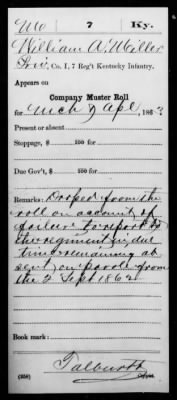 M 7 Ky.
William A. Miller
Priv, Co. I, 7 Reg't Kentucky Infantry.
Appears on
Company Muster Roll
for Mch & Apl, 1863
Present or absent
Stoppage, $ 100 for
Due Gov't, $ 100 for
Remarks: Droped from the
roll on account of
failure to report to
the regiment in due
time remaining ab
sent on parole from
the 2 Sept 1862
Book mark:
Talbutt
(358) Copyist.